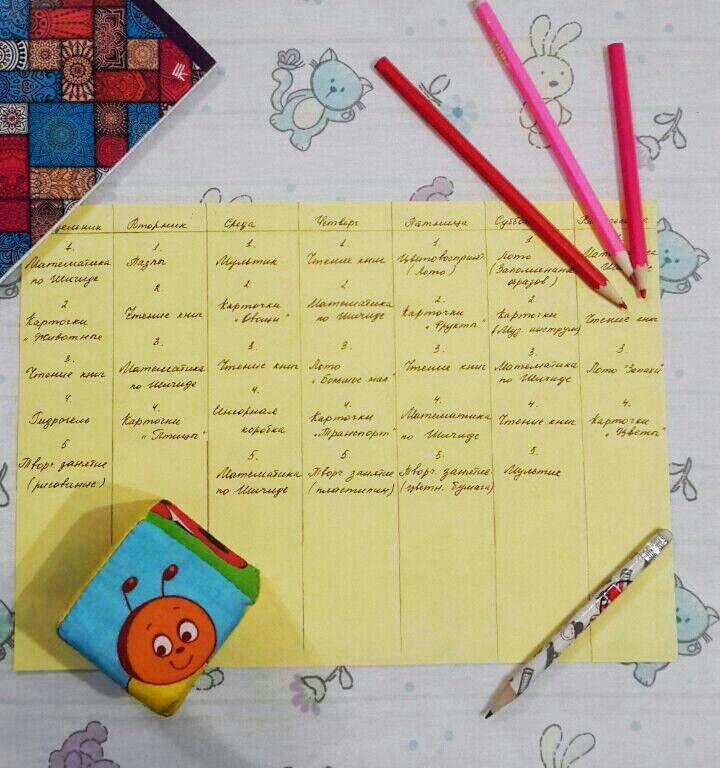 дельник
1.
Математика
по Шичиде
2.
Карточки
„Животные"
3.
Чтение книг
4.
Гидрогель
5.
Творч. занятие
(рисование)
Вторник
1.
Пазлы
2.
Чтение книг
3.
Математика
по Шичиде
4.
Карточки
„Птицы"
Среда
1.
Мультик
2.
Карточки
„Овощи"
3.
Чтение книг
4.
Сенсорная
коробка
5.
Математика
по Шичиде
Четверг
1.
Чтение книг
2.
Математика
по Шичиде
3.
Лото
4.
Карточки
„Транспорт"
5.
Творч. занятие
(пластилин)
Пятница
1.
Цветовосприят.
(Лото)
2.
Карточки
„Фрукты"
3.
Чтение книг
4.
Математика
по Шичиде
5.
Творч. занятие
(цветн. бумага)
Суббо
1.
Лото
(Запоминание
образов)
2.
Карточки
„Муз. инструм"
3.
Математика
по Шичиде
4.
Чтение книг
5.
Мультик
1.
2.
Чтение книг
3.
Лото "Запахи"
4.
Карточки
„Цветы"